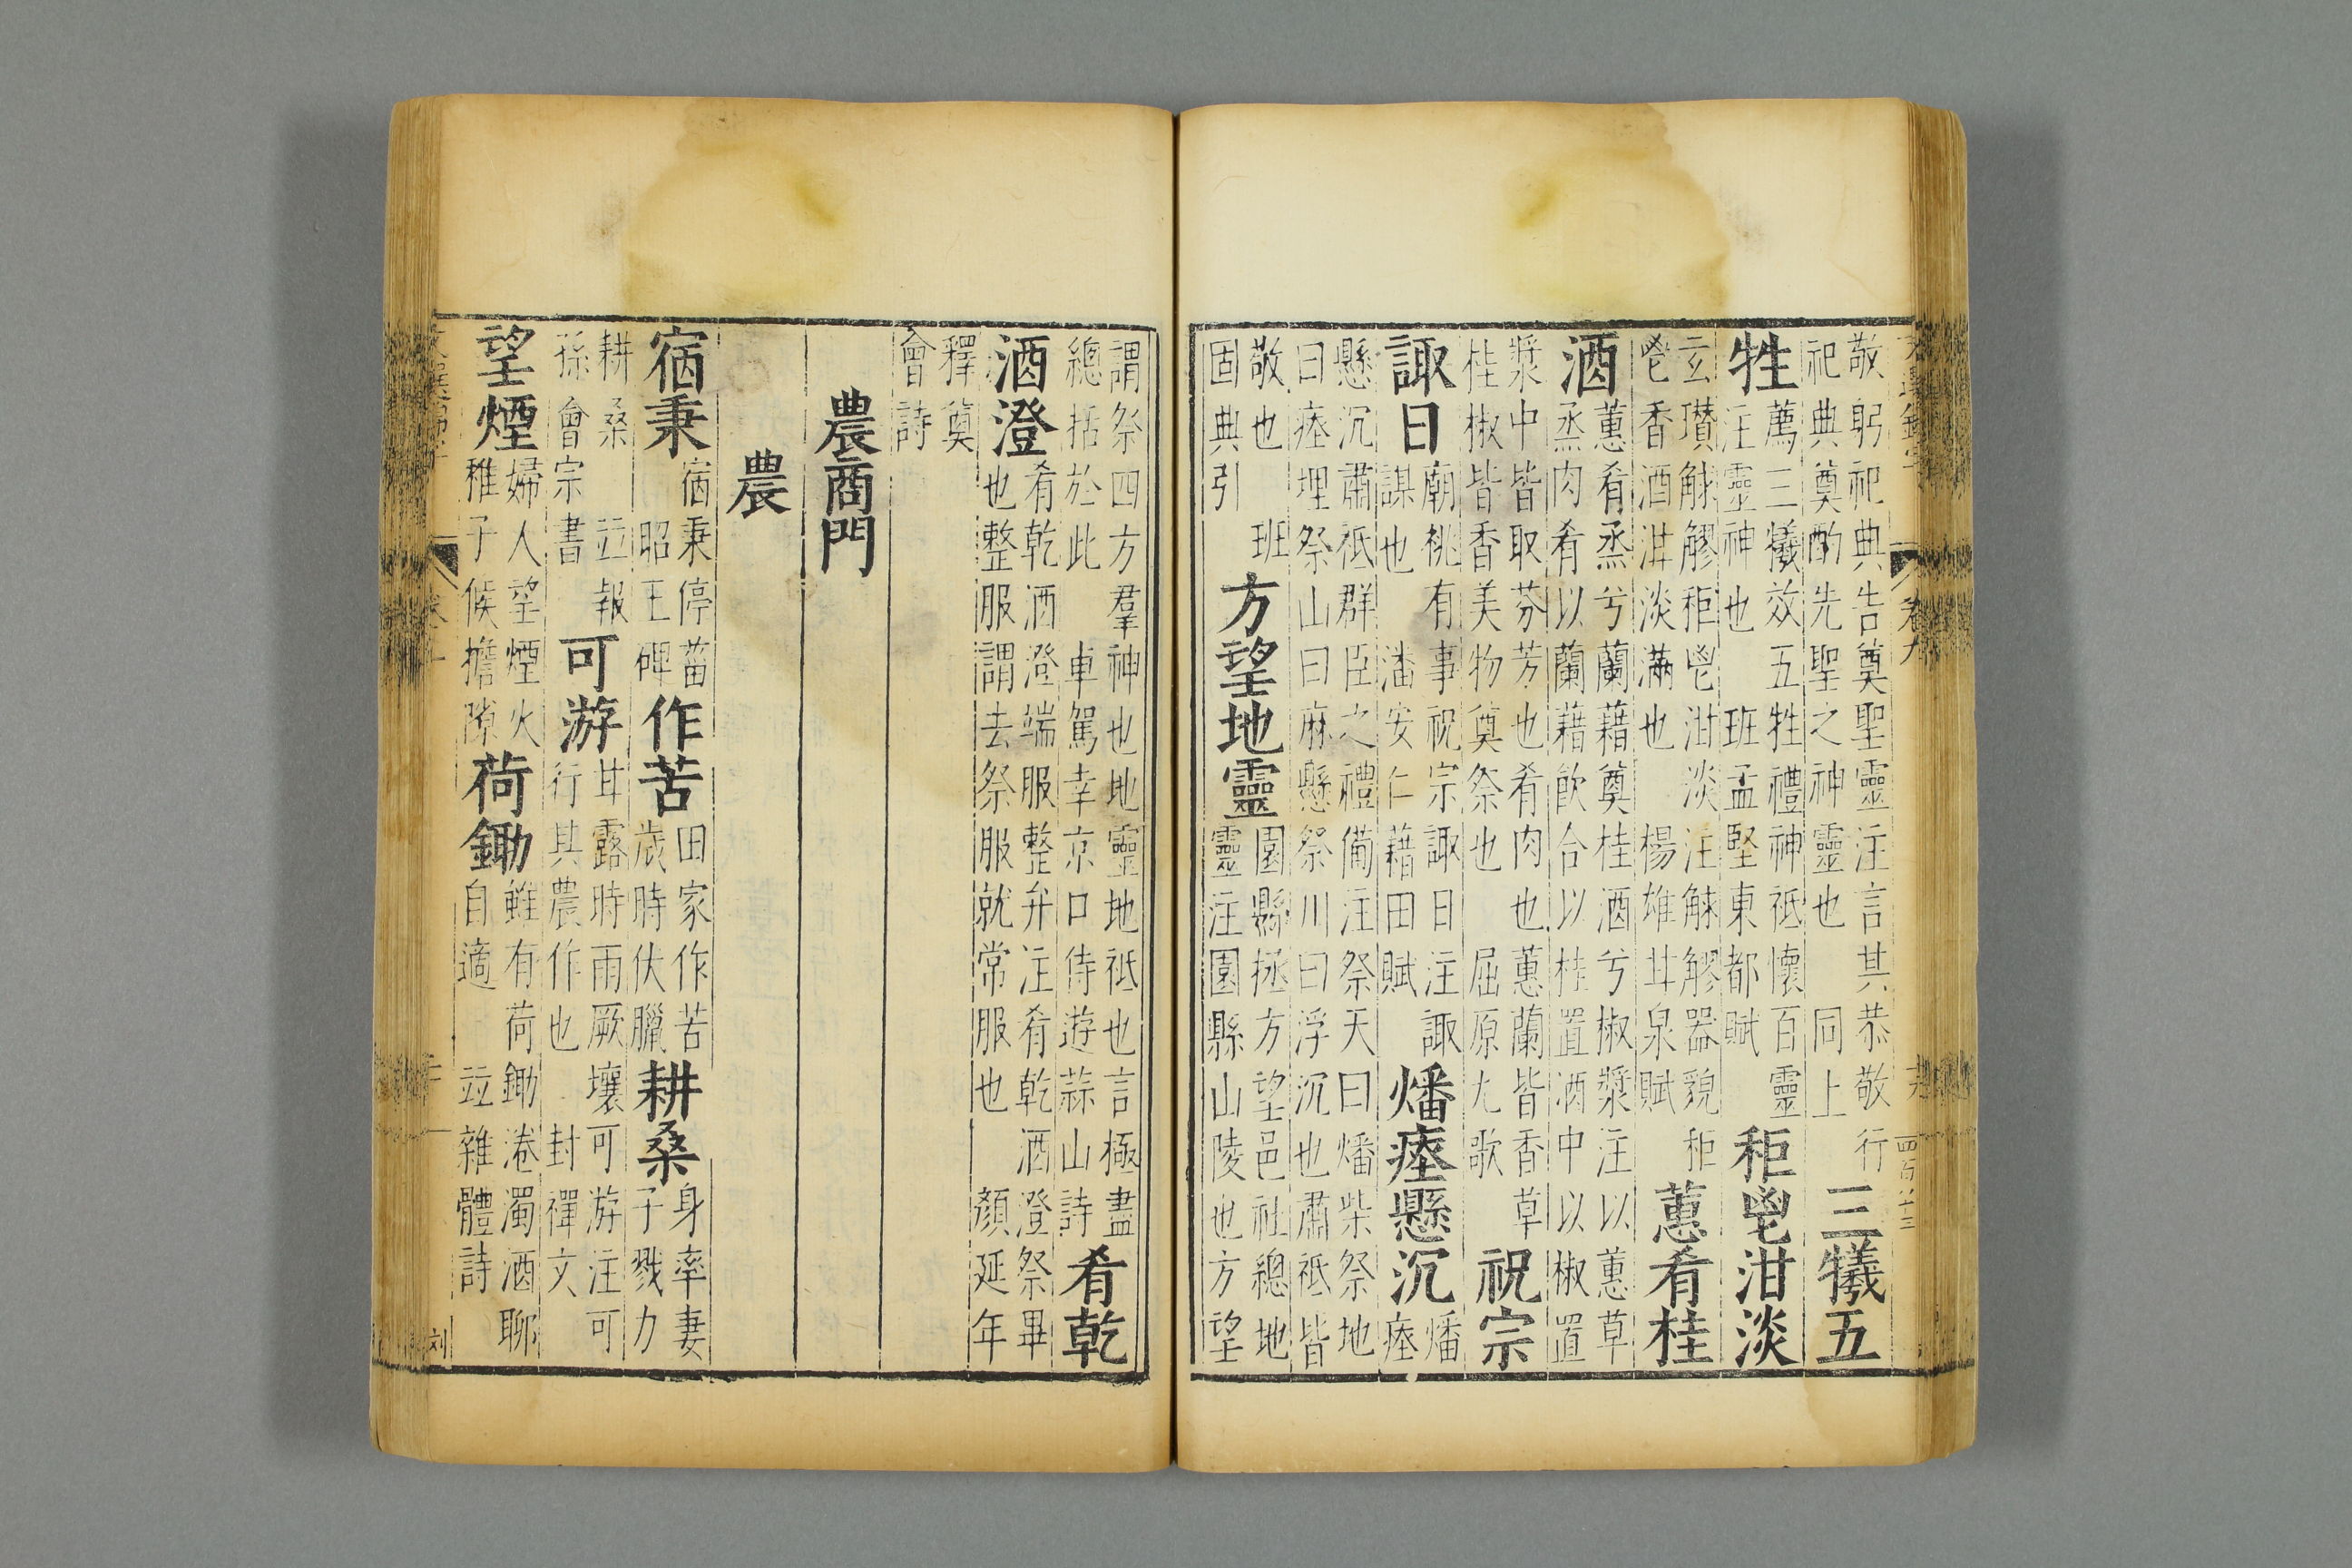 敬躬祀典告奠聖靈注言其恭敬行
祀典奠酌先聖之神靈也　同上
三犧五
牲
薦三犧效五牲禮神祗懷百靈
注靈神也　班孟堅東都賦
秬鬯泔淡
玄瓚觩䚧秬鬯泔淡注觩䚧器貌秬
鬯香酒泔淡滿也　楊雄甘泉賦
蕙肴桂
酒
蕙肴烝兮蘭藉奠桂酒兮椒漿注以蕙草
烝肉肴以蘭藉飲合以桂置酒中以椒置
漿中皆取芬芳也肴肉也蕙蘭皆香草
桂椒皆香美物奠祭也　屈原九歌
祝宗
諏日
廟祧有事祝宗諏日注諏
謀也　潘安仁藉田賦
燔瘞懸沉
燔瘞
懸沉肅祗群臣之禮備注祭天曰燔柴祭地
曰瘞埋祭山曰庪懸祭川曰浮沉也肅祗皆
敬也　班
固典引
方望地靈
園縣拯方望邑社總地
靈注園縣山陵也方望
謂祭四方羣神也地靈地祗也言極盡
總括於此　車駕幸京口侍遊蒜山詩
肴乾
酒澄
肴乾酒澄端服整弁注肴乾酒澄祭畢
也整服謂去祭服就常服也　顏延年
釋奠
會詩
農商門
農
宿秉
宿秉停菑
昭王碑
作苦
田家作苦
歲時伏臘
耕桑
身率妻
子戮力
耕桑　並報
孫會宗書
可游
甘露時雨厥壤可游注可
行其農作也　封禪文
望煙
婦人望煙火
稚子候擔隙
荷鋤
雖有荷鋤倦濁酒聊
自適　並雜體詩
刘